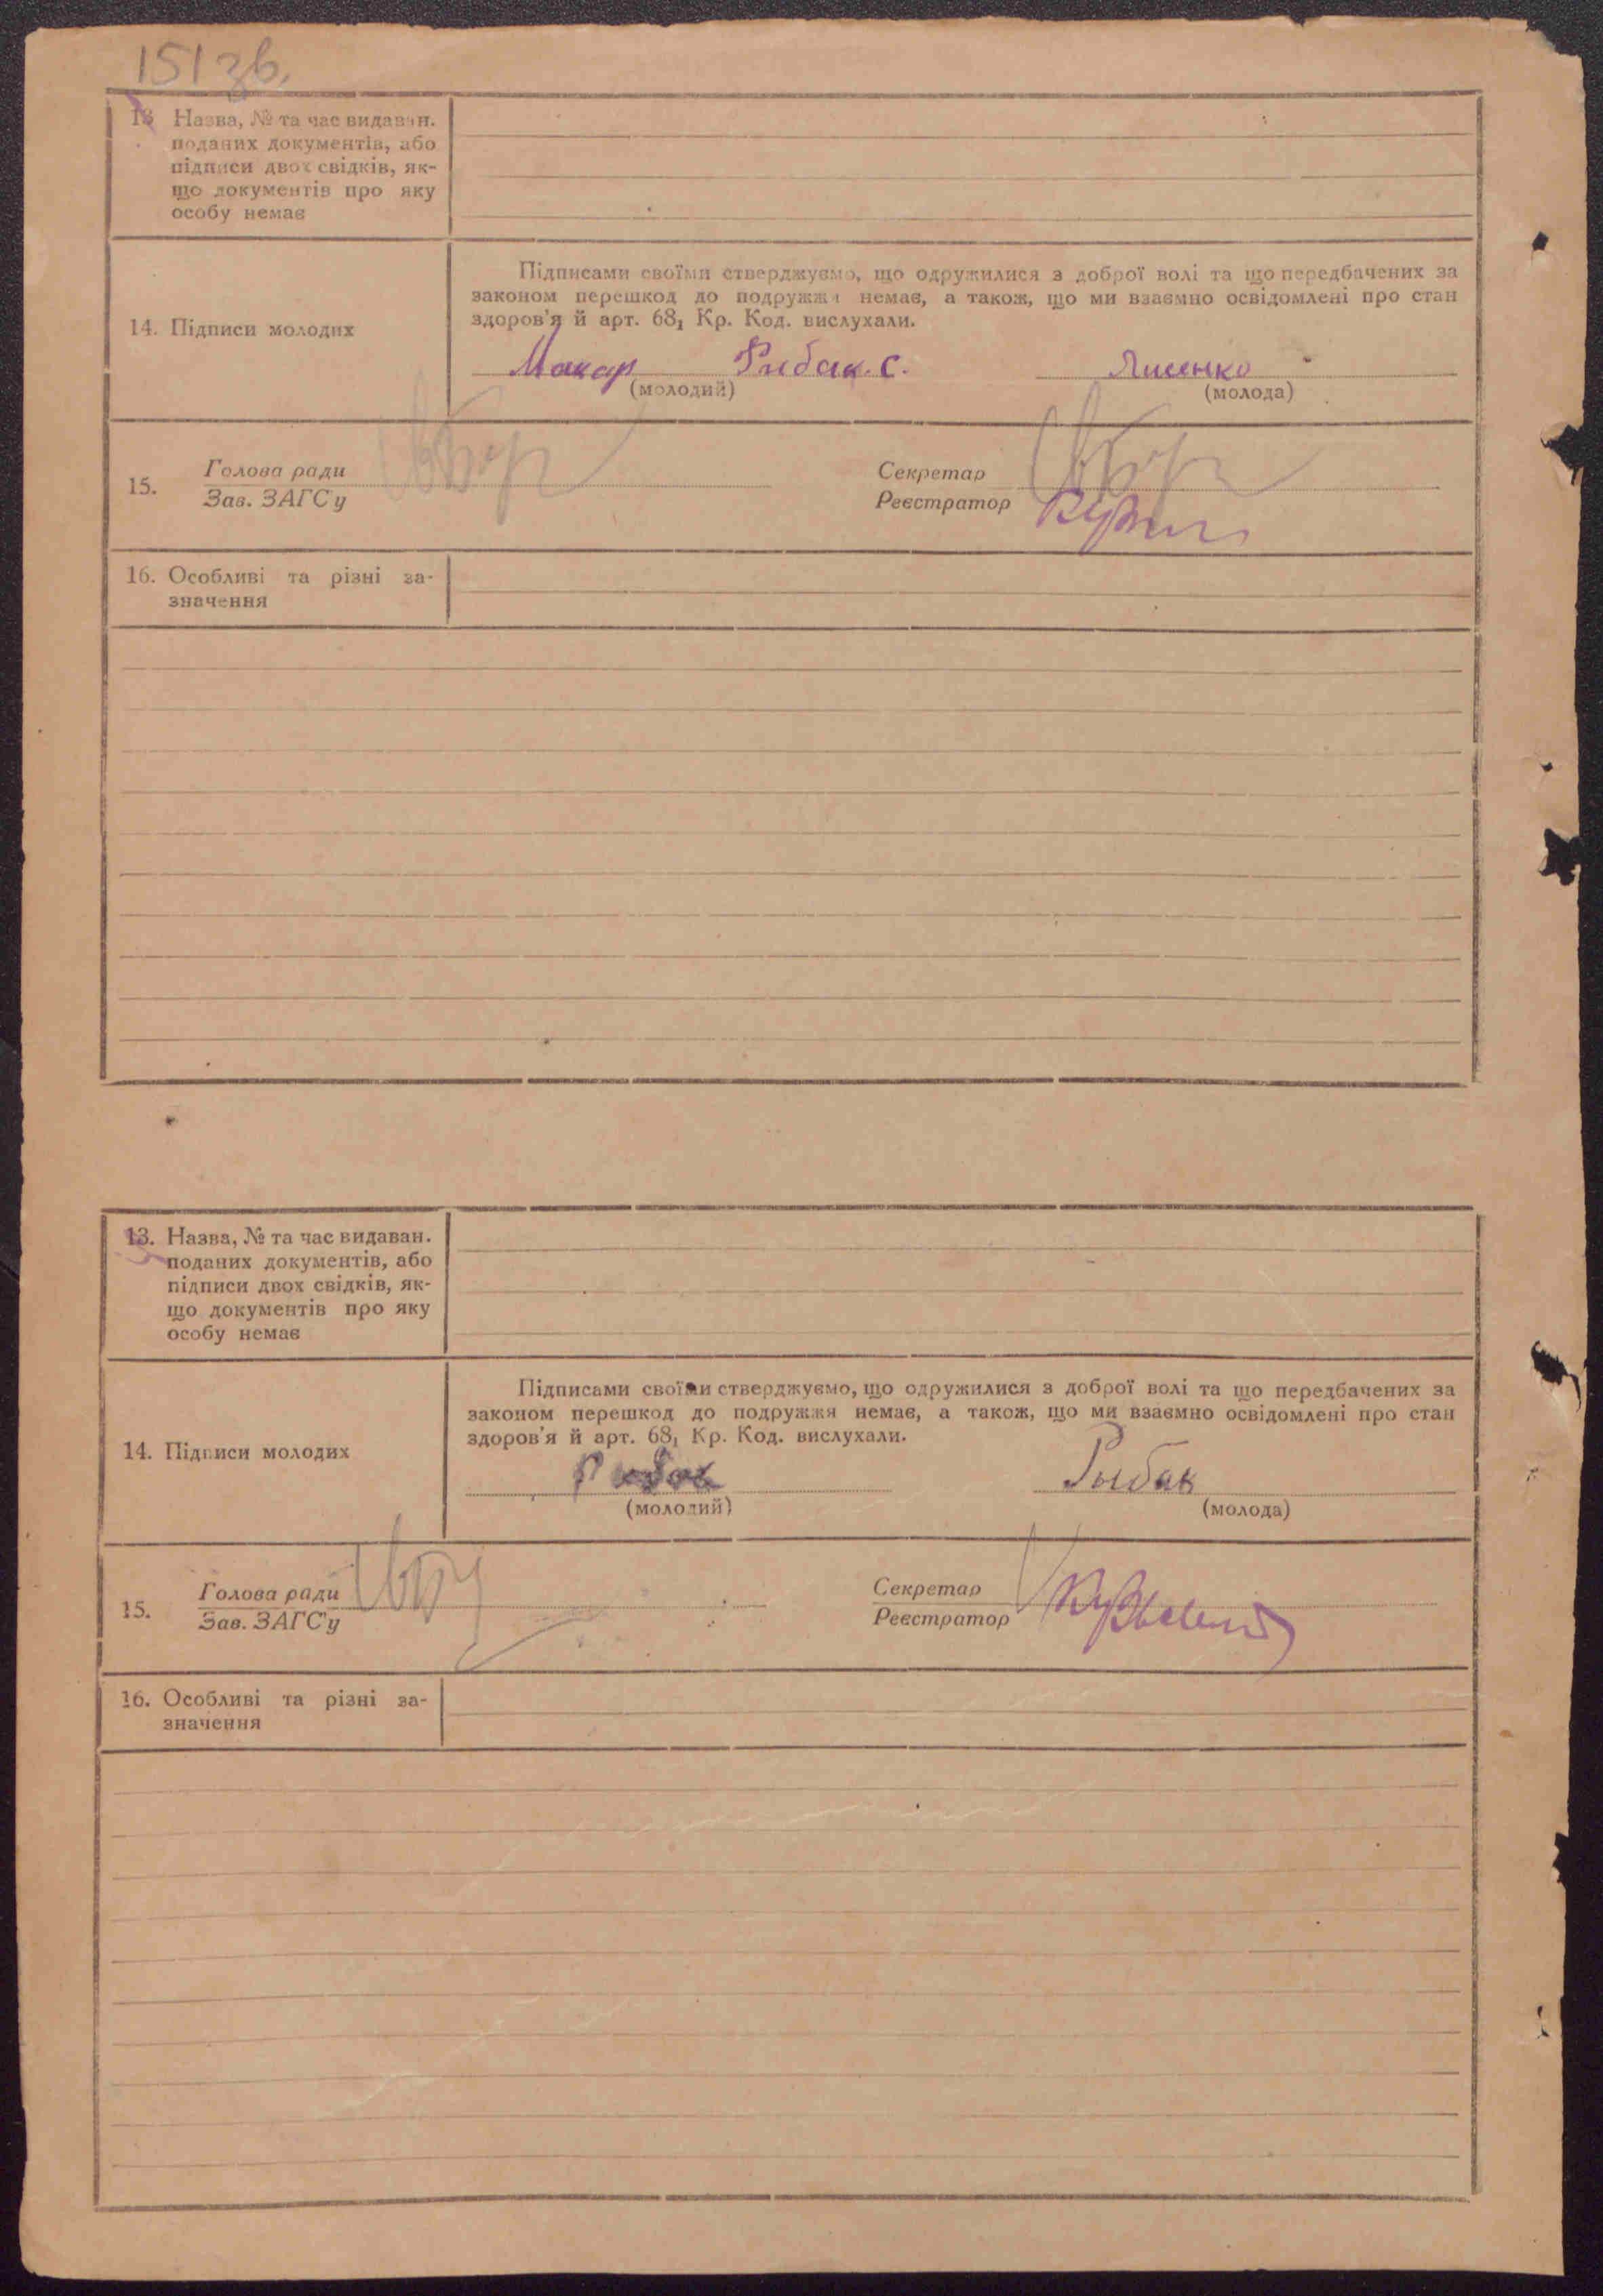 151 зв.
13 Назва, № та час видаван.
поданих документів, або
підписи двох свідків, як-
що документів про яку
особу немає
14. Підписи молодих
Підписами своїми стверджуємо, що одружилися з доброї волі та що передбачених за
законом перешкод до подружжя немає, а також, що ми взаємно освідомлені про стан
здоров'я й арт. 68₁ Кр. Код. вислухали.
Макар Рибак. С. Лисенко
(молодий) (молода)
15. Голова ради
Зав. ЗАГС'у
Секретар
Реєстратор
16. Особливі та різні за-
значення
13. Назва, № та час видаван.
поданих документів, або
підписи двох свідків, як-
що документів про яку
особу немає
14. Підписи молодих
Підписами своїми стверджуємо, що одружилися з доброї волі та що передбачених за
законом перешкод до подружжя немає, а також, що ми взаємно освідомлені про стан
здоров'я й арт. 68₁ Кр. Код. вислухали.
Рибак Рыбак
(молодий) (молода)
15. Голова ради
Зав. ЗАГС'у
Секретар
Реєстратор
16. Особливі та різні за-
значення